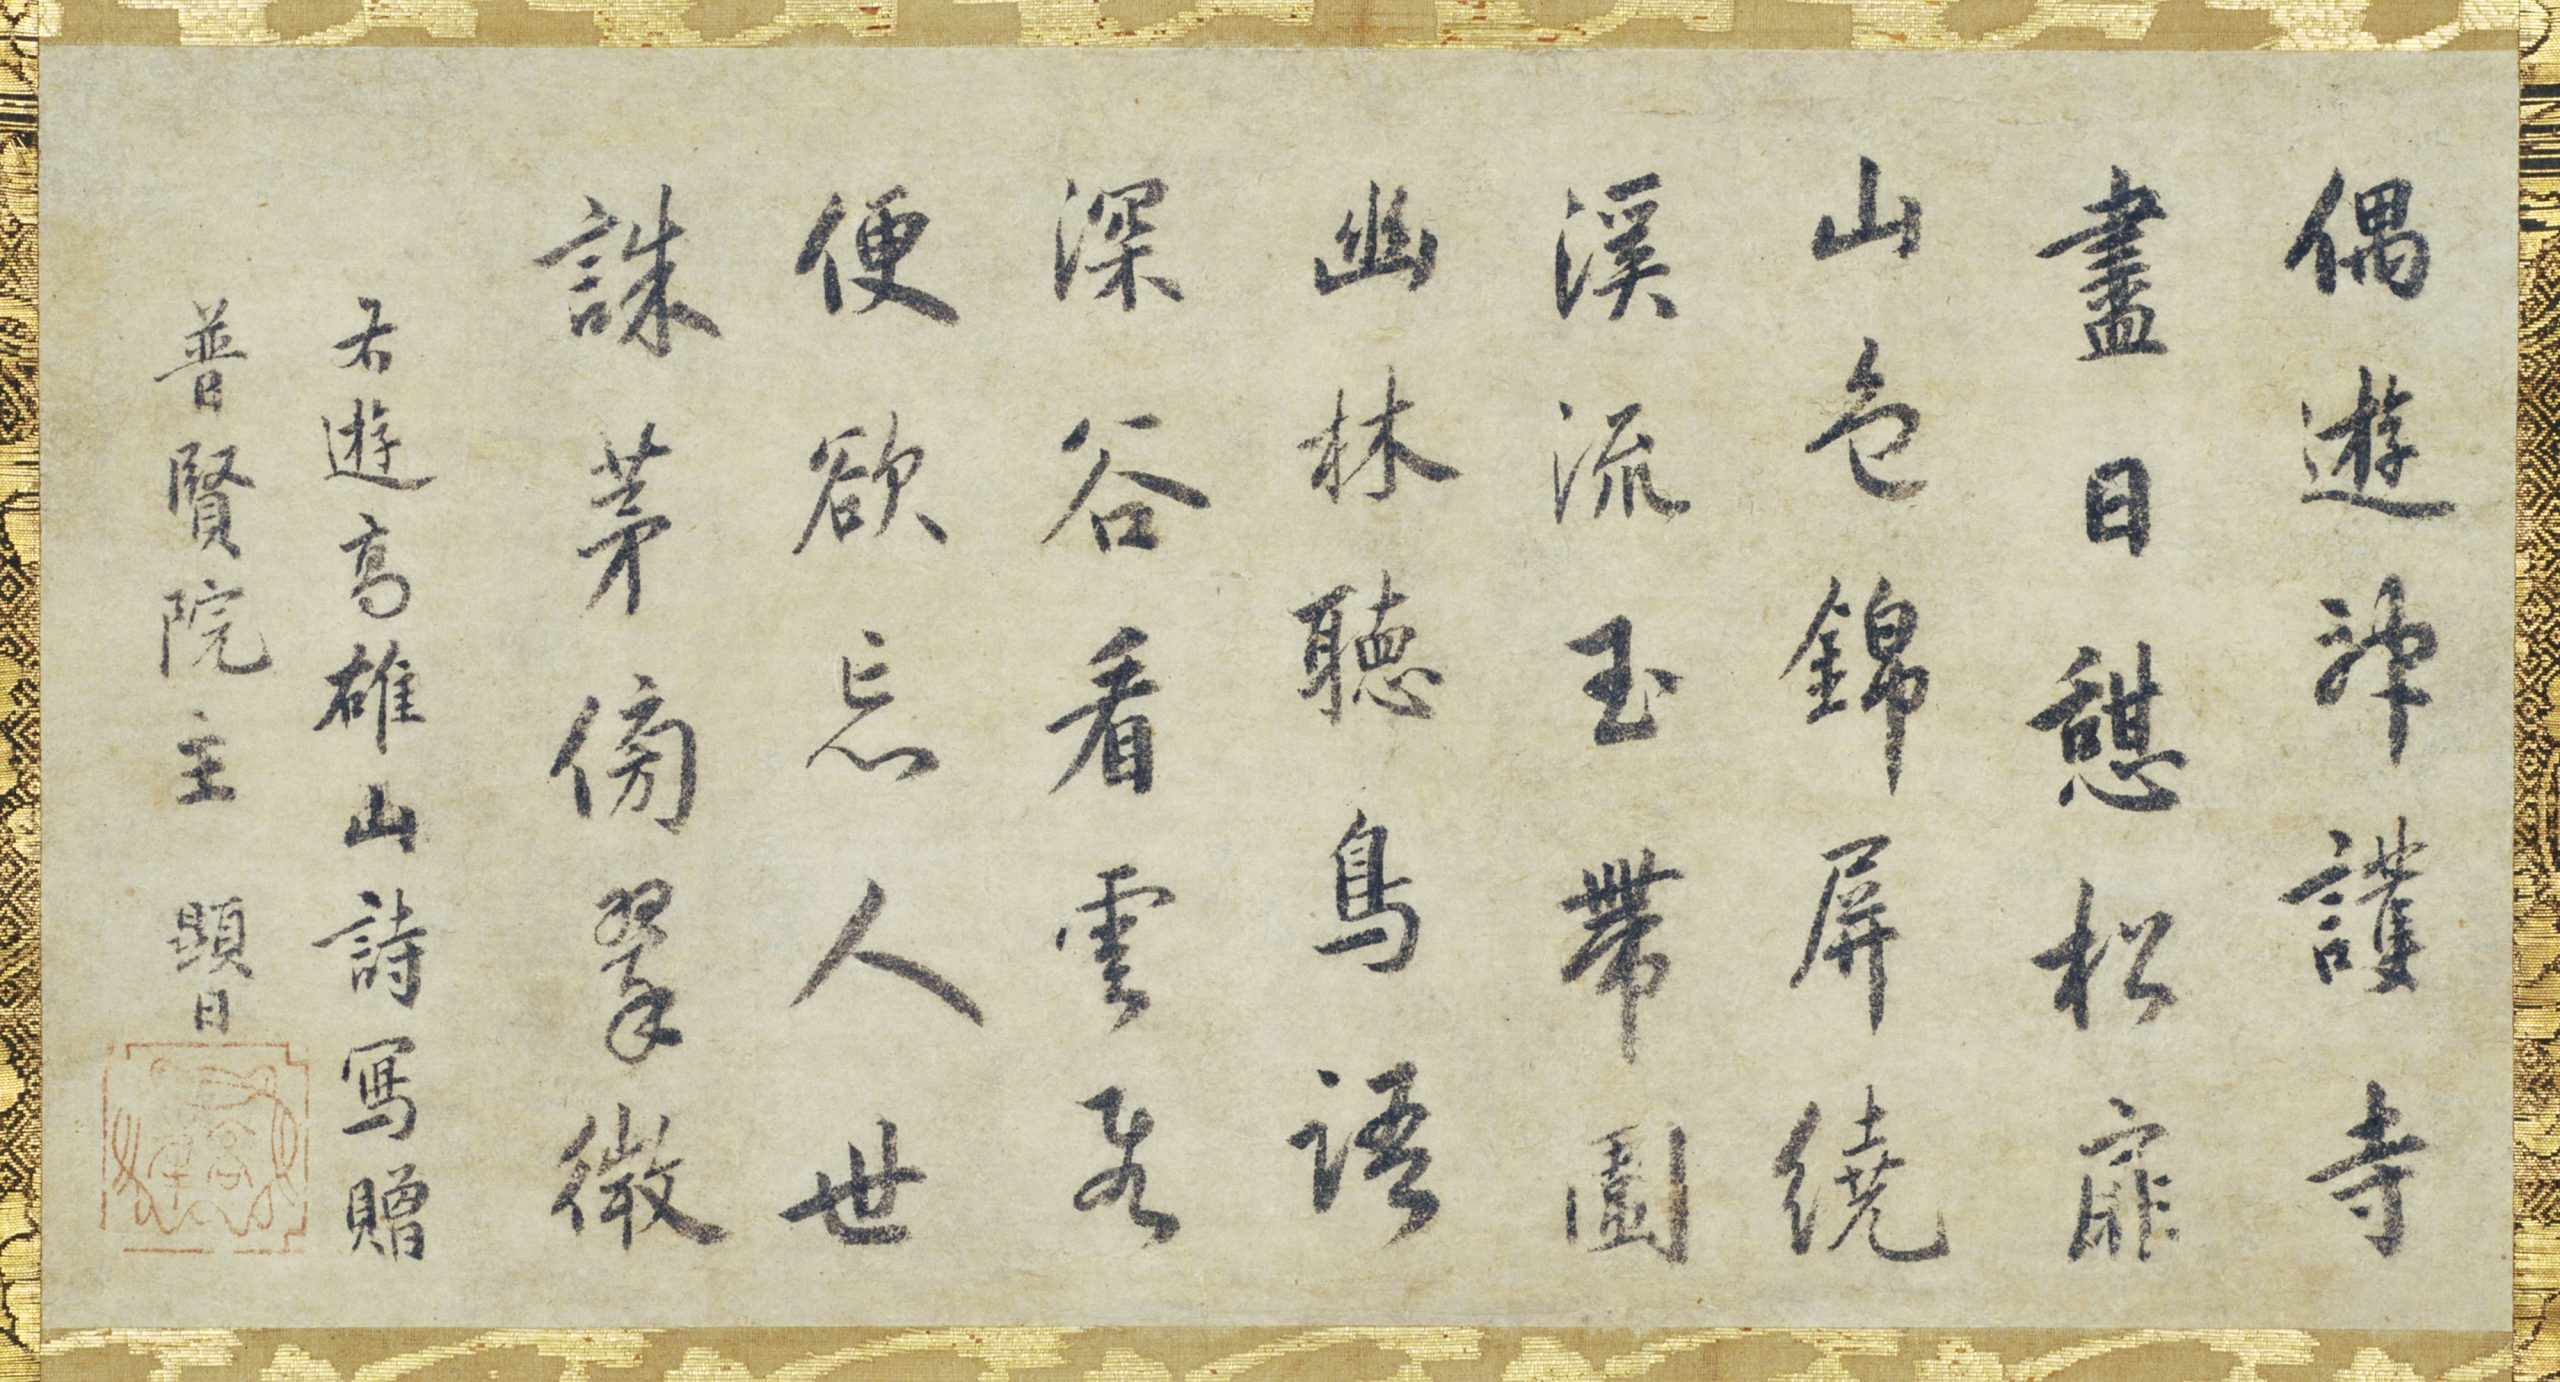 偶遊神護寺
盡日憩松扉
山色錦屏繞
溪流玉帶圍
幽林聽鳥語
深谷看雲飛
便欲忘人世
誅茅傍翠微
右遊高雄山詩寫贈
普賢院主 顕日